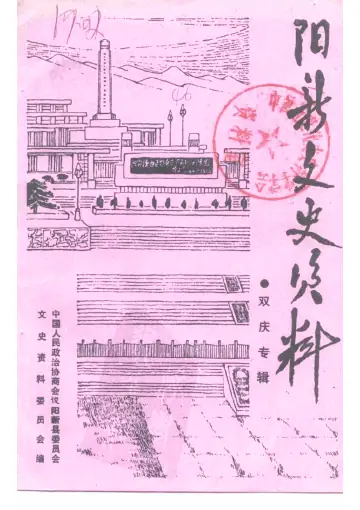 阳新文史资料
●双庆专辑
中国人民政治协商会议阳新县委员会
文史资料委员会编